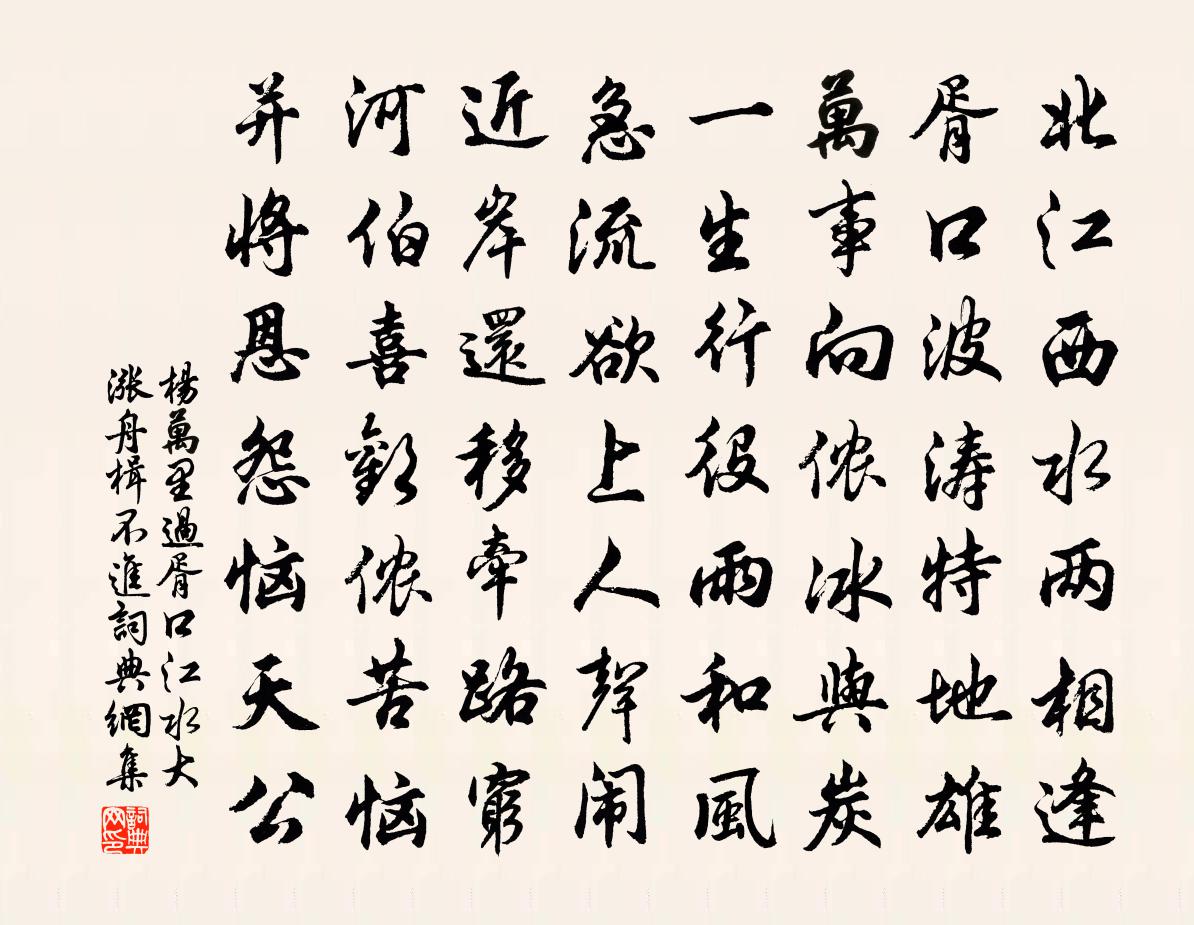 北江西水两相逢
胥口波涛特地雄
萬事向侬冰與炭
一生行役雨和風
急流欲上人聲闹
近岸還移牽路窮
河伯喜歡侬苦恼
并將恩怨恼天公
楊萬里過胥口江水大
漲舟楫不進詞典網集
詞典网印